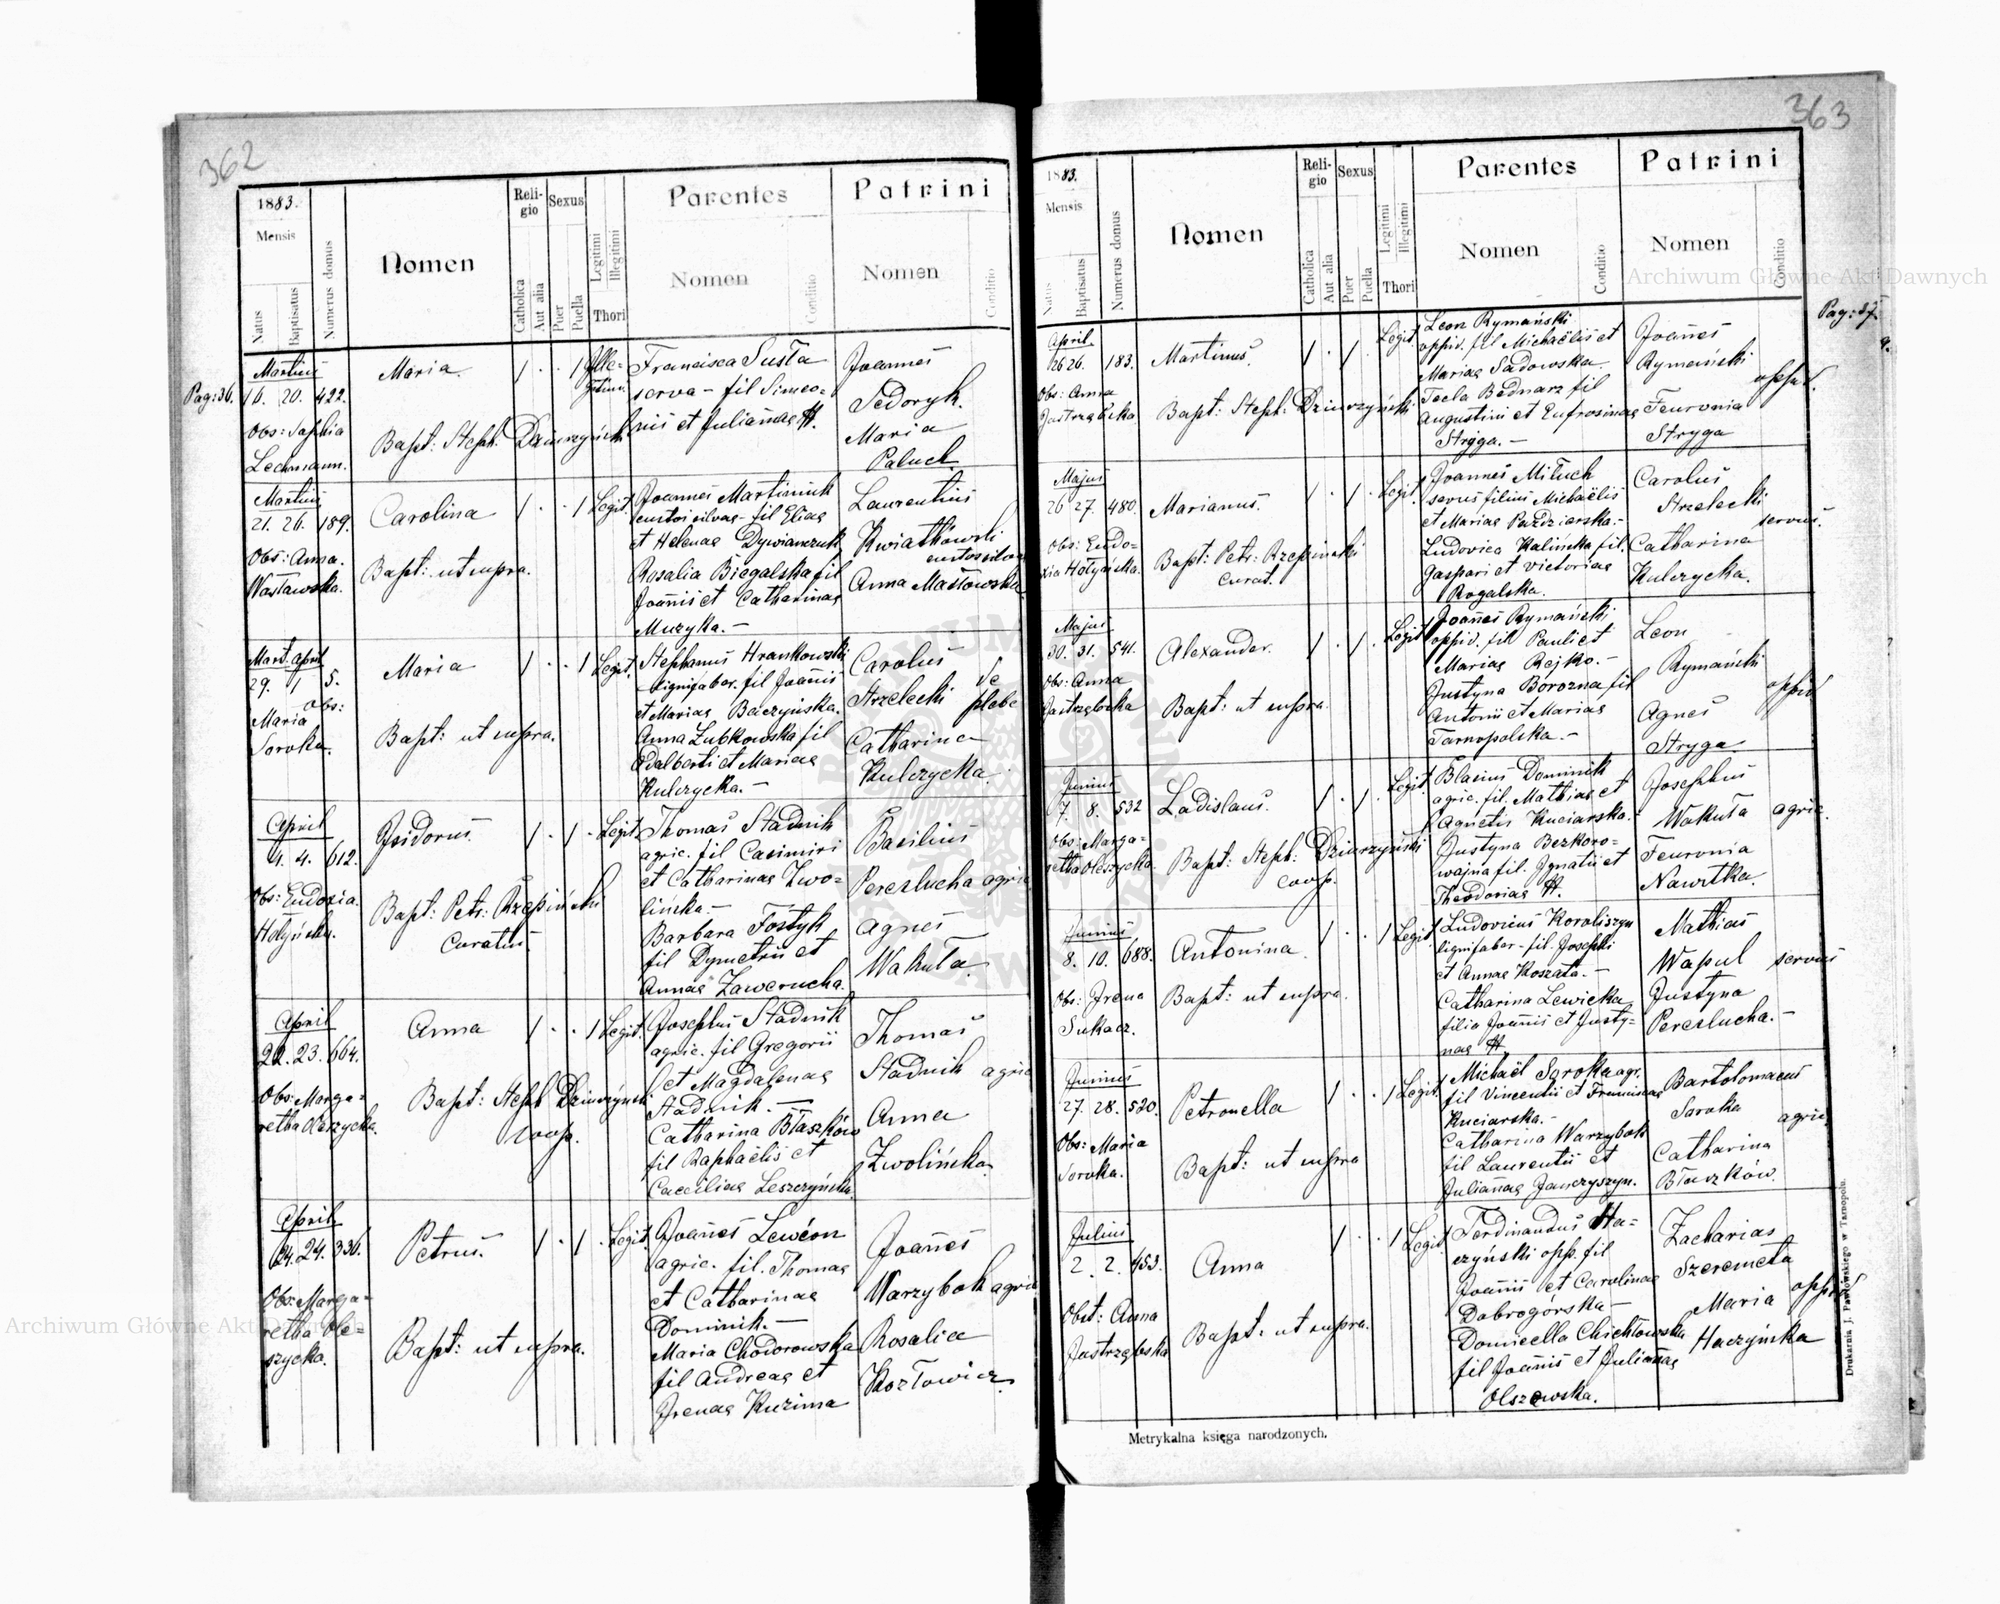 362
1883.
Mensis
Natus
Baptisatus
Numerus domus
Nomen
Religio
Catholica
Aut alia
Sexus
Puer
Puella
Legitimi
Illegitimi
Thori
Parentes
Nomen
Conditio
Patrini
Nomen
Conditio
Pag: 36.
Martius
16. 20. 422.
Obs: Sophia
Lechmann.
Maria
Bapt: Steph. Dziurzyński
1 . . 1
Ille-
gitimi.
Francisca Susta
serva - fil Simeo-
nis et Julianae H.
Joannes
Fedoryk.
Maria
Paluch
Martius
21. 26. 189.
Obs: Anna.
Wasławska.
Carolina
Bapt: ut supra.
1 . . 1 Legit.
Joannes Martiniuk
custos silvae - fil Eliae
et Helenae Dywianczuk
Rosalia Biegalska fil
Joannis et Catharinae
Muzyka. -
Laurentius
Kwiatkowski
custos silvae
Anna Masłowska
Mart. April
29. 1 5.
Obs:
Maria
Soroka.
Maria
Bapt: ut supra.
1 . . 1 Legit.
Stephanus Hrankowski
lignifaber. fil Joannis
et Mariae Baczyńska.
Anna Lubkowska fil
Adalberti et Mariae
Kulczycka. -
Carolus
Strzelecki de plebe
Catharina
Kulczycka
April
4. 4. 612.
Obs: Eudoxia.
Hołyńska.
Isidorus.
Bapt: Petr: Rzepiński
Curatus
1 . 1 . Legit.
Thomas Stadnik
agric. fil Casimiri
et Catharinae Zwo-
lińska. -
Barbara Fostyk
fil Dymetrii et
Annae Zawerucha.
Basilius
Peresłucha agric
Agnes
Wakuła.
April
22. 23. 664.
Obs: Marga-
retha Olszycka.
Anna
Bapt: Steph Dziurzyński
coop.
1 . . 1 Legit.
Josephus Stadnik
agric. fil Gregorii
et Magdalenae
Stadnik. -
Catharina Błaszków
fil Raphaëlis et
Caeciliae Leszczyńska.
Thomas
Stadnik agric
Anna
Zwolińska.
April
24. 24. 336.
Obs: Marga-
retha Ole-
szycka.
Petrus.
Bapt: ut supra.
1 . 1 . Legit.
Joannes Lewcon
agric. fil. Thomae
et Catharinae
Dominik. -
Maria Chodorowska
fil Andreae et
Irenae Kuzima
Joannes
Warzybok agric
Rosalia
Kozłowicz.
363
1883.
Mensis
Natus
Baptisatus
Numerus domus
Nomen
Religio
Catholica
Aut alia
Sexus
Puer
Puella
Legitimi
Illegitimi
Thori
Parentes
Nomen
Conditio
Patrini
Nomen
Conditio
Pag: 37.
April
26 26. 183.
Obs: Anna
Jastrzębska.
Martinus.
Bapt: Steph: Dziurzyński
1 . 1 . Legit.
Leon Rymański
oppid. fil Michaëlis et
Mariae Sadowska.
Tecla Bednarz fil
Augustini et Eufrosinae
Stryga. -
Joannes
Rymański
oppid.
Feuronia
Stryga
Majus
26 27. 480.
Obs: Eudo-
xia Hołyńska.
Marianus.
Bapt: Petr: Rzepinski
curat.
1 . 1 . Legit.
Joannes Miluch
servus filius Michaëlis
et Mariae Paździerska. -
Ludovica Kalińska fil.
Gaspari et Victoriae
Rogalska.
Carolus
Strzelecki
servus.
Catharina
Kulczycka.
Majus
30. 31. 541.
Obs: Anna
Jastrzębska
Alexander.
Bapt: ut supra.
1 . 1 . Legit
Joannes Rymański
oppid. fil Pauli et
Mariae Rejko. -
Justyna Borozna fil
Antonii et Mariae
Tarnopolska. -
Leon
Rymański
oppid
Agnes
Stryga
Junius
7. 8. 532
Obs: Marga-
retha Oleszycka
Ladislaus.
Bapt: Steph: Dziurzyński
coop.
1 . 1 . Legit.
Blasius Dominik
agric. fil. Mathiae et
Agnetis Kuciarska.
Justyna Bezkoro-
wajna fil. Ignatii et
Theodoriae H.
Josephus
Wakuła agric.
Feuronia
Nawrłka.
Junius
8. 10. 688.
Obs: Irena
Sukacz.
Antonina.
Bapt: ut supra.
1 . . 1 Legit.
Ludovicus Koroliszyn
lignifaber - fil. Josephi
et Annae Koszała. -
Catharina Lewicka
filia Joannis et Justy-
nae H.
Mathias
Wapul servus
Justyna
Peresłucha. -
Junius
27. 28. 520.
Obs: Maria
Soroka.
Petronella
Bapt: ut supra
1 . . 1 Legit.
Michaël Soroka agr.
fil Vincentii et Franciscae
Kuciarska. -
Catharina Warzybok
fil Laurentii et
Julianae Janczyszyn.
Bartolomaeus
Soroka
agric.
Catharina
Błaszków.
Julius
2. 2. 453.
Obst: Anna
Jastrzębska
Anna
Bapt: ut supra.
1 . . 1 Legit
Ferdinandus Ha-
czyński opp. fil
Joannis et Carolinae
Dobrogórska -
Domicella Chichłowska
fil Joannis et Julianae
Olszewska.
Zacharias
Szeremeta
Maria oppid
Haczyńska
Metrykalna księga narodzonych.
Drukarnia J. Pawłowskiego w Tarnopolu.
Archiwum Główne Akt Dawnych
Archiwum Główne Akt Dawnych